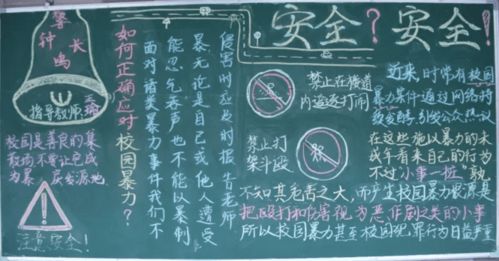 警钟长鸣
指导教师:
校园是善良的集
散场不要让它成
为暴力发源地
注意安全!
如何正确应对校园暴力?
面对诸类暴力事件我们不
能忍气吞声也不能以暴制
暴无论是自己或他人遭受
侵害时应及时报告老师
安全?安全!
禁止在楼道
内追逐打闹
禁止打
架斗殴
近来,时常有校园
暴力案件通过网络时
致发酵,引发公众热议
在这些施以暴力的未
成年看来自己的行为
不过小事一桩,孰
不知其危害之大,而产生校园暴力根源是
把殴打和伤害视为恶作剧之类的小事
所以校园暴力甚至校园犯罪行为日益严重